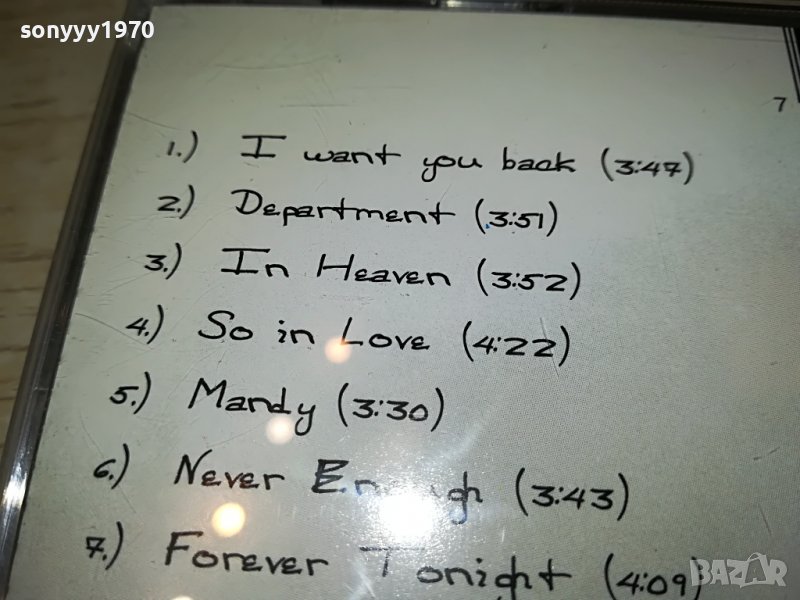 sonyyy1970
7
1.) I want you back (3:47)
2.) Department (3:51)
3.) In Heaven (3:52)
4.) So in Love (4:22)
5.) Mandy (3:30)
6.) Never Enough (3:43)
7.) Forever Tonight (4:09)
bazar